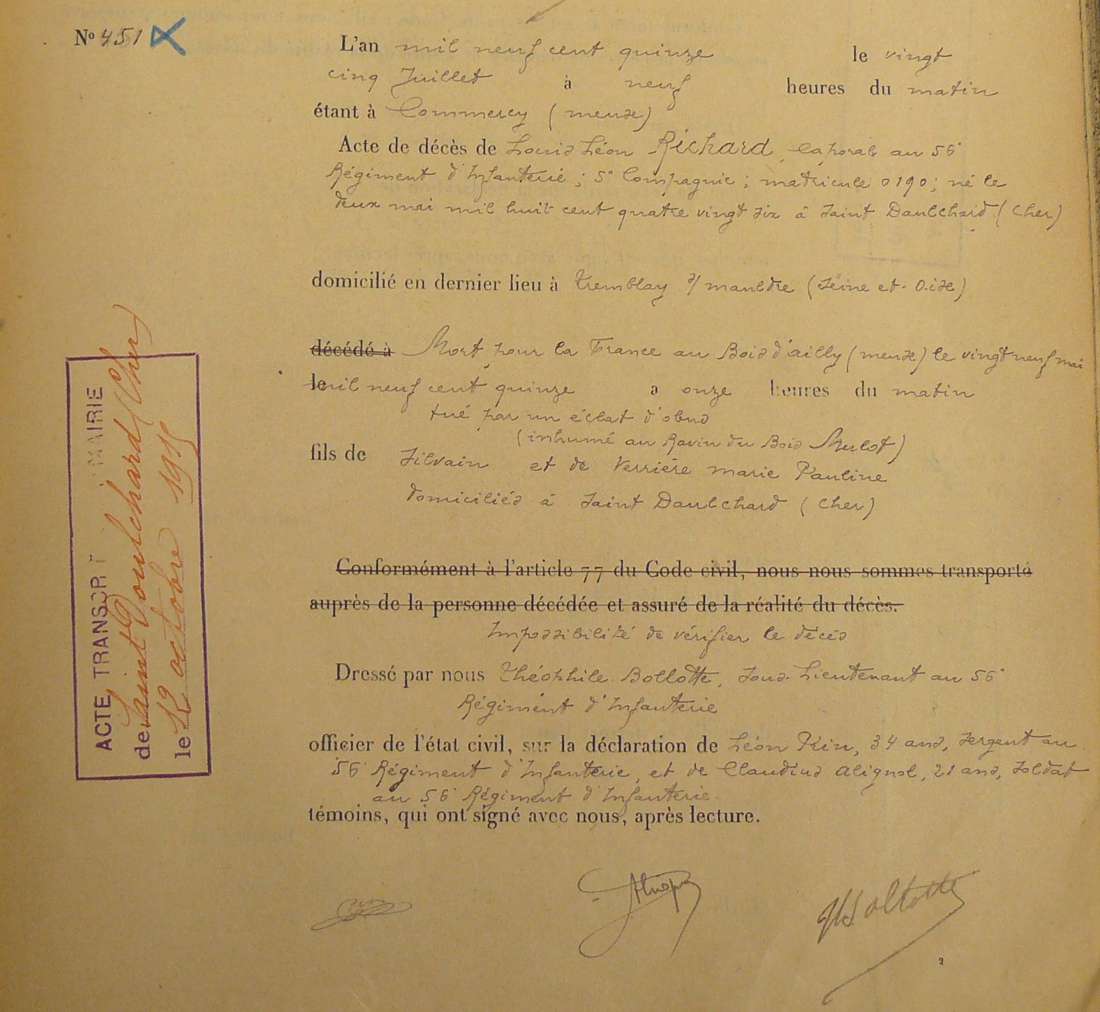 No 451
L'an mil neuf cent quinze le vingt
cinq Juillet à neuf heures du matin
étant à Commercy (meuse)
Acte de décès de Louis Léon Richard, caporal au 56e
Régiment d'Infanterie ; 5e Compagnie ; matricule 0190 ; né le
deux mai mil huit cent quatre vingt six à Saint Daulchard (Cher)
domicilié en dernier lieu à Tremblay s/ mauldre (Seine et-Oise)
décédé à Mort pour la France au Bois d'ailly (meuse) le vingt neuf mai
le mil neuf cent quinze a onze heures du matin
tué par un éclat d'obus
(inhumé au Ravin du Bois Mulot)
fils de Silvain et de Verrière marie Pauline
domiciliés à Saint Daulchard (Cher)
Conformément à l'article 77 du Code civil, nous nous sommes transporté
auprès de la personne décédée et assuré de la réalité du décès.
Impossibilité de vérifier le décès
Dressé par nous Théophile Bollotte, Sous-Lieutenant au 56e
Régiment d'Infanterie
officier de l'état civil, sur la déclaration de Léon Kin, 34 ans, Sergent au
56e Régiment d'Infanterie, et de Claudius Alignol, 21 ans, Soldat
au 56e Régiment d'Infanterie
témoins, qui ont signé avec nous, après lecture.
ThBollotte
2
ACTE TRANSCRIT MAIRIE
de Saint Doulchard (Cher)
le 12 octobre 1915